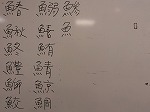 鰆 鰯 鯵
鰍 魚
鮗 鮪
鱧 鯖
鰤 鯨
鮫 鯛